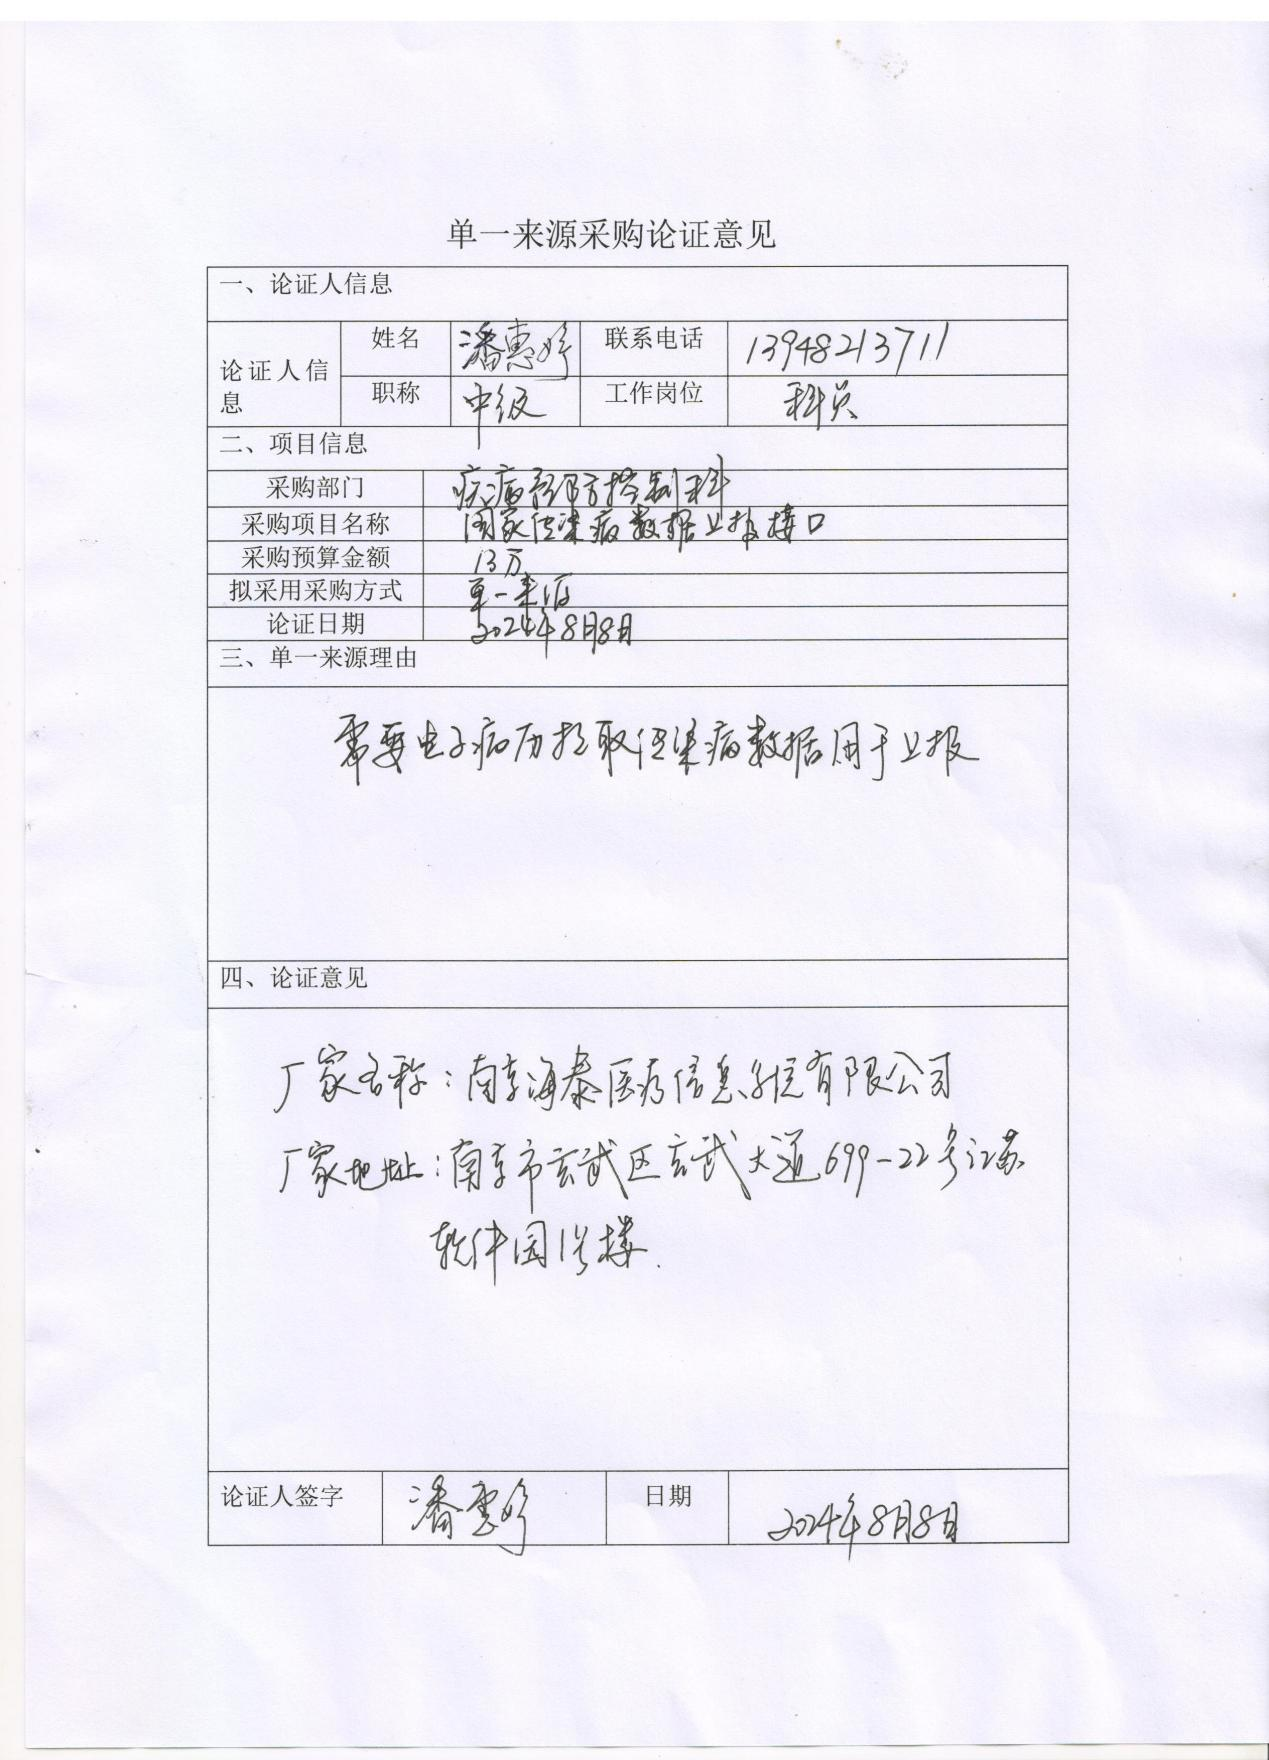 单一来源采购论证意见
一、论证人信息
论证人信息
姓名 潘惠婷 联系电话 13948213711
职称 中级 工作岗位 科员
二、项目信息
采购部门 疾病预防控制科
采购项目名称 国家传染病数据上报接口
采购预算金额 13万
拟采用采购方式 单一来源
论证日期 2024年8月8日
三、单一来源理由
需要电子病历提取传染病数据用于上报
四、论证意见
厂家名称:南京海泰医疗信息系统有限公司
厂家地址:南京市玄武区玄武大道699-22号江苏
软件园1号楼.
论证人签字 潘惠婷 日期 2024年8月8日